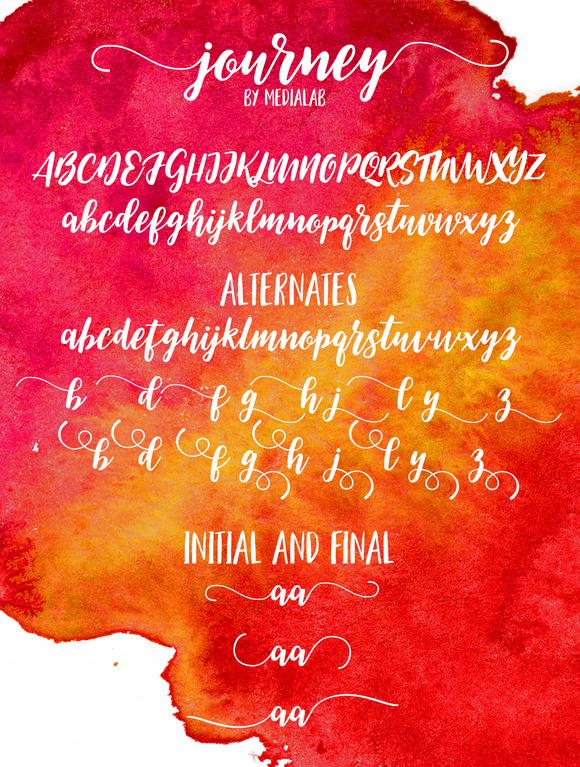 journey
BY MEDIALAB
ABCDEFGHIJKLMNOPQRSTUVWXYZ
abcdefghijklmnopqrstuvwxyz
ALTERNATES
abcdefghijklmnopqrstuvwxyz
b d f g h j l y z
b d f g h j l y z
INITIAL AND FINAL
aa
aa
aa